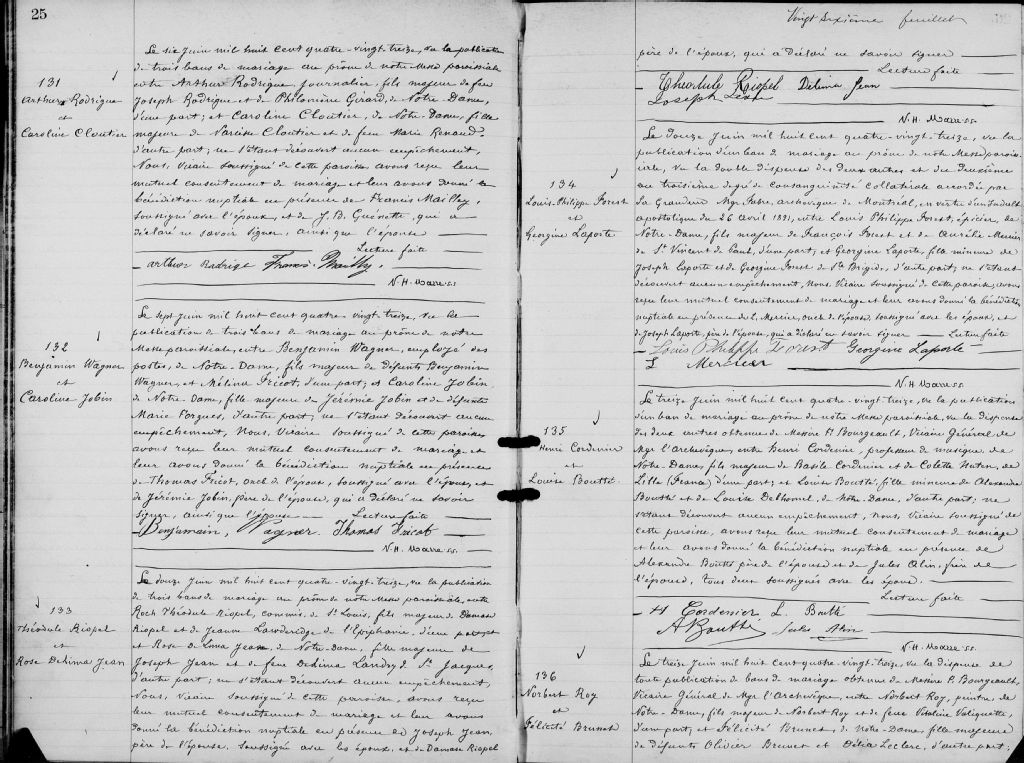 25
131
Arthur Rodrigue
et
Caroline Cloutier
Le six Juin mil huit cent quatre-vingt-treize, vu la publication
de trois bans de mariage au prône de notre Messe paroissiale
entre Arthur Rodrigue journalier, fils majeur de feu
Joseph Rodrigue et de Philomène Girard, de Notre-Dame,
d'une part; et Caroline Cloutier, de Notre-Dame, fille
majeure de Narcisse Cloutier et de feue Marie Renaud,
d'autre part; ne s'étant découvert aucun empêchement,
Nous, Vicaire soussigné de cette paroisse avons reçu leur
mutuel consentement de mariage et leur avons donné la
bénédiction nuptiale en présence de Francis Mailley,
soussigné avec l'époux, et de J. B. Guenette, qui a
déclaré ne savoir signer, ainsi que l'épouse
Lecture faite
arthur Rodrige Thomas
N.H. Marre ss.
132
Benjamin Wagner
et
Caroline Jobin
Le sept Juin mil huit cent quatre-vingt-treize, vu la
publication de trois bans de mariage au prône de notre
Messe paroissiale, entre Benjamin Wagner, employé des
postes, de Notre-Dame, fils majeur de défunts Benjamin
Wagner, et Mélina Fricot, d'une part, et Caroline Jobin,
de Notre Dame, fille majeure de Jérémie Jobin et de défunte
Marie Forgues, d'autre part, ne s'étant découvert aucun
empêchement, Nous, Vicaire soussigné de cette paroisse
avons reçu leur mutuel consentement de mariage et
leur avons donné la bénédiction nuptiale en présence
de Thomas Fricot, oncle de l'époux, soussigné avec l'époux, et
de Jérémie Jobin, père de l'épouse, qui a déclaré ne savoir
signer, ainsi que l'épouse Lecture faite
Benjamain, Wagner Thomas Fricot
N.H. Marre ss.
133
Théodule Riopel
et
Rose Delima Jean
Le douze Juin mil huit cent quatre-vingt-treize, vu la publication
de trois bans de mariage au prône de notre Messe paroissiale, entre
Roch Théodule Riopel, commis, de St Louis, fils majeur de Damase
Riopel et de Jeanne de l'Epiphanie, d'une part
et Rose de Lima Jean de Notre-Dame, fille majeure de
Joseph Jean et de feue Delima Landry de St Jacques,
d'autre part; ne s'étant découvert aucun empêchement,
Nous, Vicaire soussigné de cette paroisse, avons reçu
leur mutuel consentement de mariage et leur avons
donné la bénédiction nuptiale en présence de Joseph Jean,
père de l'épouse, soussigné avec les époux, et de Damase Riopel
Vingt sixième feuillet
père de l'époux, qui a déclaré ne savoir signer
Lecture faite
Theodule Riopel Delima Jean
Joseph Jean
N.H. Marre ss.
134
Louis-Philippe Forest
et
Georgine Laporte
Le douze Juin mil huit cent quatre-vingt-treize, vu la
publication d'un ban de mariage au prône de notre Messe parois-
siale, vu la double dispense des deux autres et du deuxième
au troisième degré de consanguinité collatérale accordée par
Sa Grandeur Mgr Fabre, archevêque de Montréal, en vertu d'un Indult
apostolique du 26 avril 1891, entre Louis Philippe Forest, épicier, de
Notre-Dame, fils majeur de François Forest et de Aurélie Mercier
de St Vincent de Paul, d'une part; et Georgine Laporte, fille mineure de
Joseph Laporte et de Georgine Forest de Ste Brigide, d'autre part; ne s'étant
découvert aucun empêchement, Nous, Vicaire soussigné de cette paroisse, avons
reçu leur mutuel consentement de mariage et leur avons donné la bénédiction
nuptiale en présence de L. Mercier, oncle de l'épouse, soussigné avec les époux, et
de Joseph Laporte, père de l'épouse, qui a déclaré ne savoir signer Lecture faite
Louis Philippe Forest Georgine Laporte
L Mercier
N.H. Marre ss.
135
Henri Cordenier
et
Louise Boutté
Le treize Juin mil huit cent quatre-vingt-treize, vu la publication
d'un ban de mariage au prône de notre Messe paroissiale, vu la dispense
des deux autres obtenue de Messire P. Bourgeault, Vicaire Général de
Mgr l'Archevêque, entre Henri Cordenier, professeur de musique, de
Notre-Dame, fils majeur de Basile Cordenier et de Colette, de
Lille (France) d'une part; et Louise Boutté, fille mineure de Alexandre
Boutté et de Louise Delhomel, de Notre-Dame, d'autre part; ne
s'étant découvert aucun empêchement, Nous, Vicaire soussigné de
cette paroisse, avons reçu leur mutuel consentement de mariage
et leur avons donné la bénédiction nuptiale en présence de
Alexandre Boutté père de l'épouse et de Jules Olin, de
l'époux, tous deux soussignés avec les époux.
Lecture faite
H Cordenier L. Boutté
A Boutté Jules Olin
N.H. Marre ss.
136
Norbert Roy
et
Félicité Brunet
Le treize Juin mil huit cent quatre-vingt-treize, vu la dispense de
toute publication de bans de mariage obtenue de Messire P. Bourgeault,
Vicaire Général de Mgr l'Archevêque, entre Norbert Roy, peintre, de
Notre-Dame, fils majeur de Norbert Roy et de feue Vitaline Valiquette,
d'une part; et Félicité Brunet, de Notre-Dame, fille majeure
de défunts Olivier Brunet et Délia Leclerc, d'autre part;